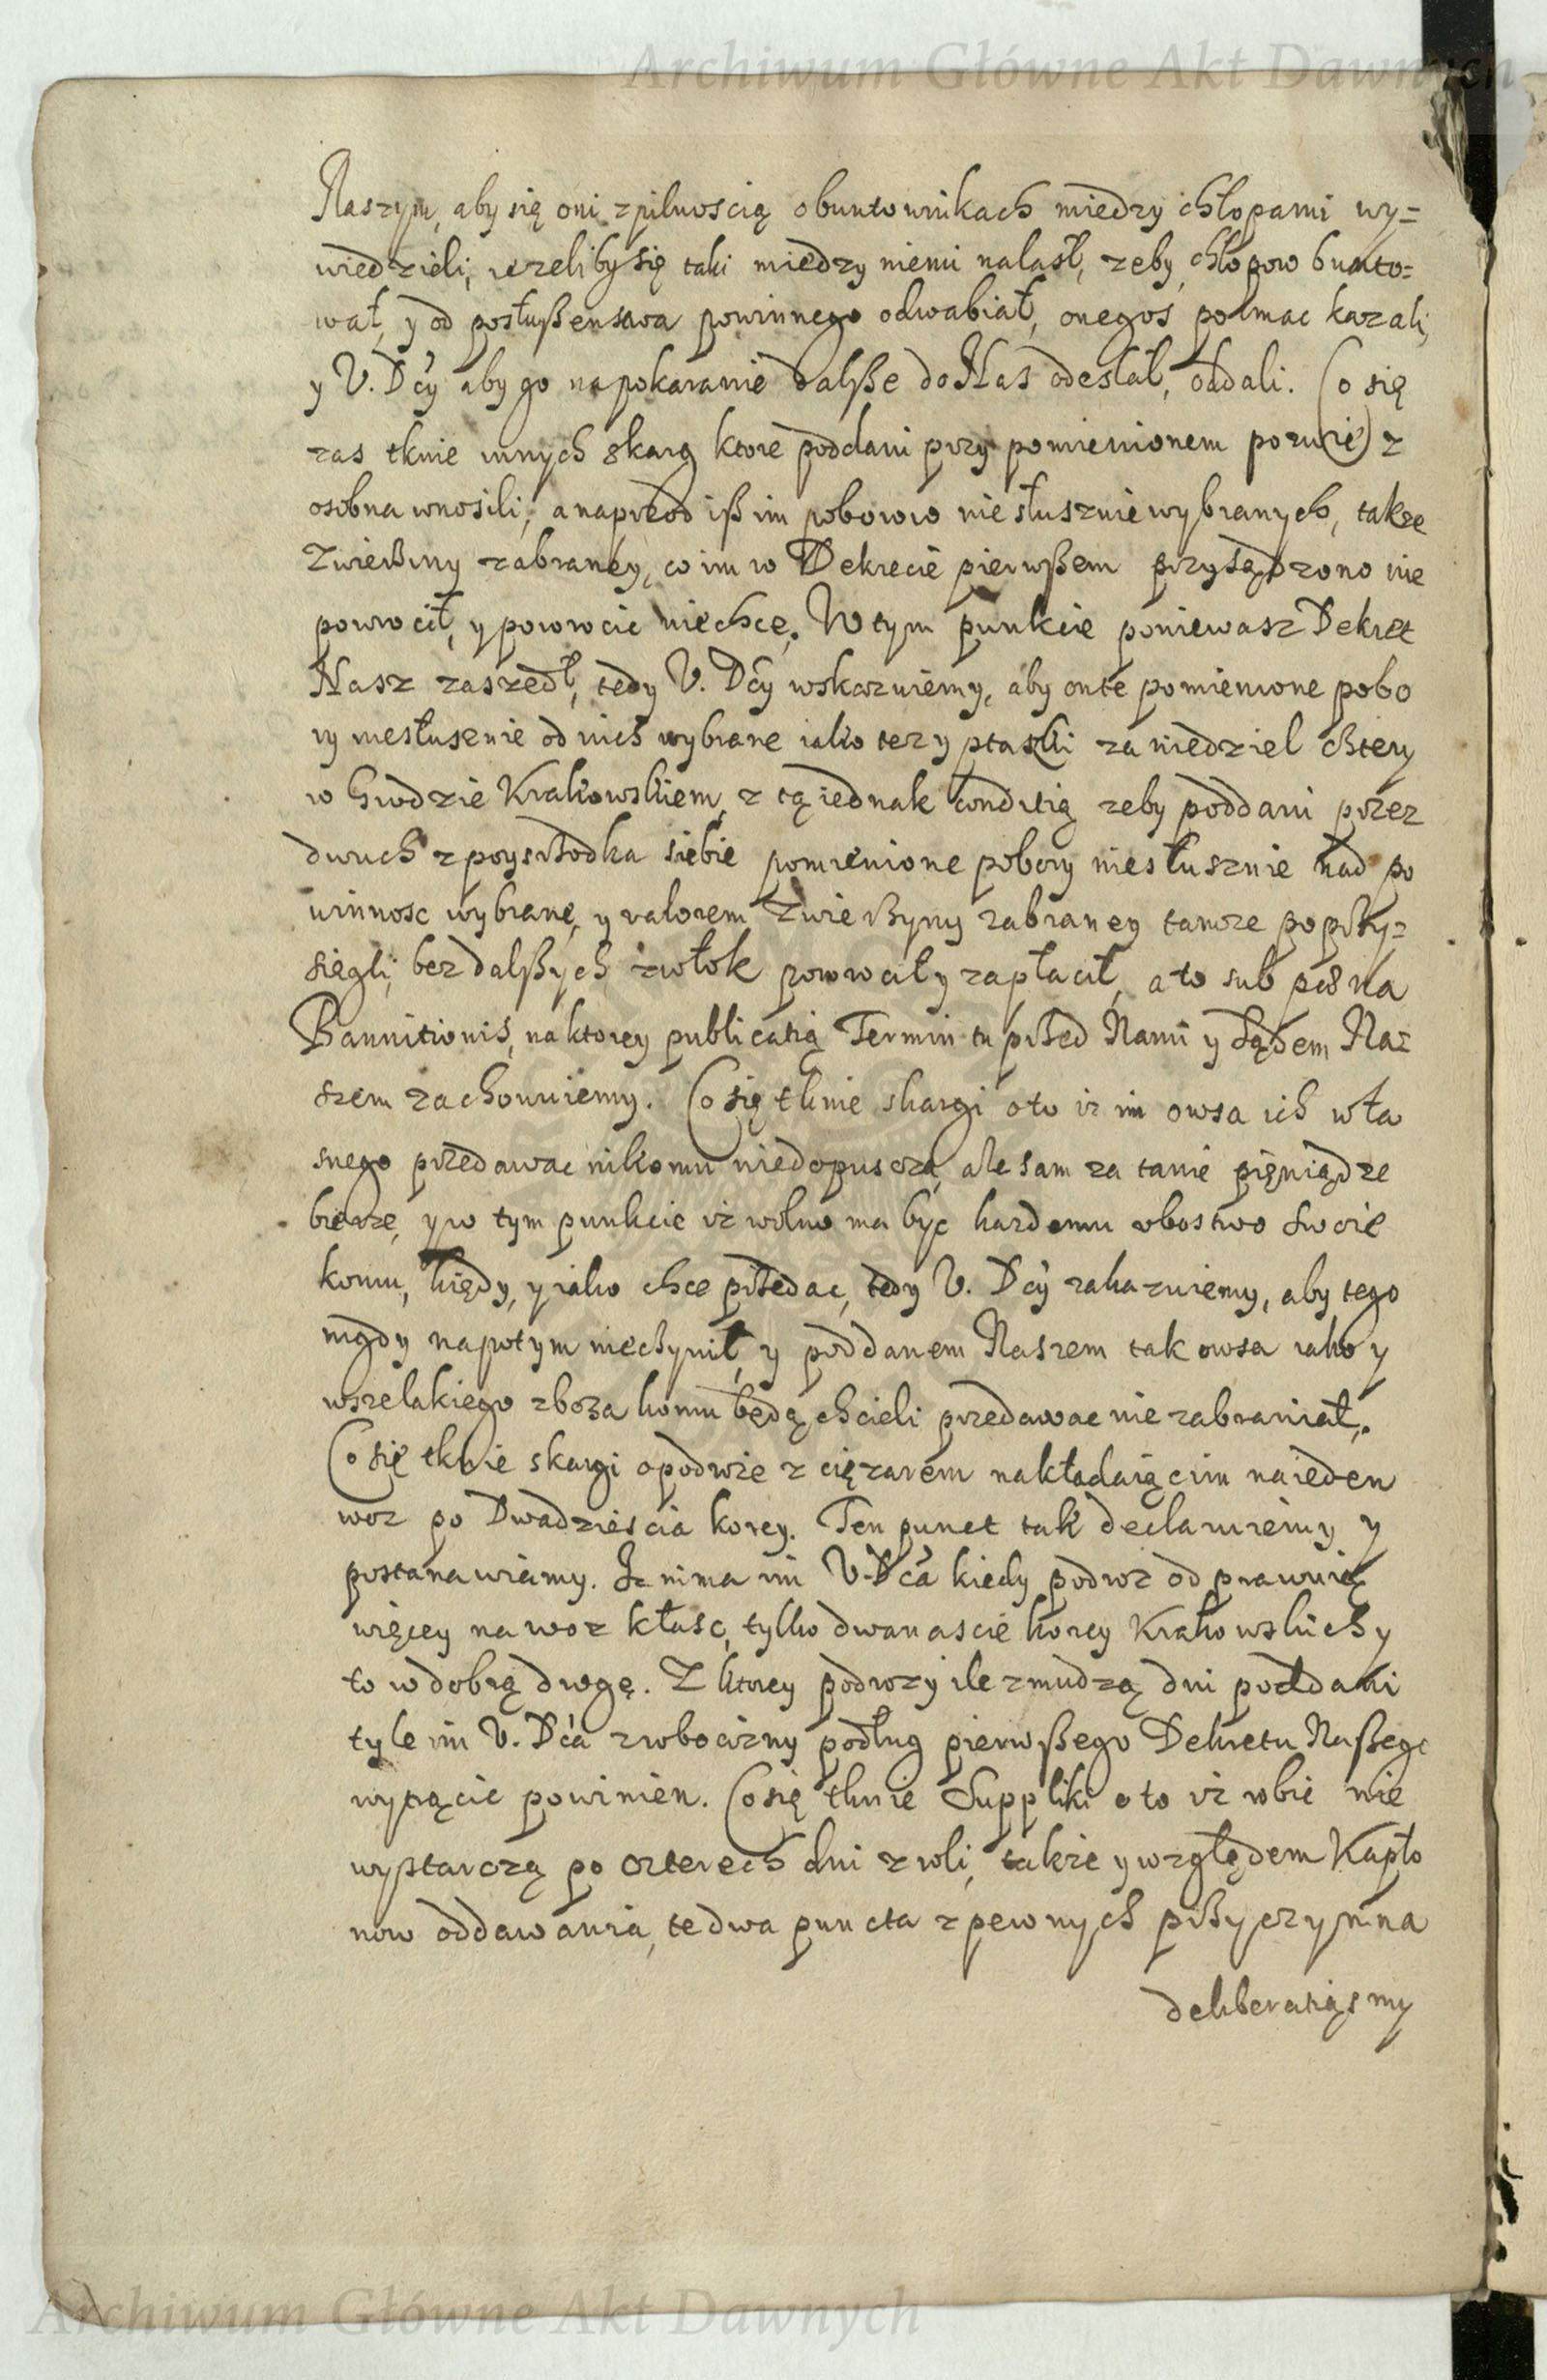 Archiwum Główne Akt Dawnych
Naszym, aby się oni z pilnoscią o buntownikach miedzy chłopami wy=
wiedzieli, iezeliby się taki miedzy niemi nalasł, zeby chłopow bunto=
wał, y od posłußenstwa powinnego odwabiał, onegoż poimac kazali,
y U. Dcy aby go na pokaranie dalße do Nas odesłał, oddali. Co się
zas tknie innych skarg ktore poddani przy pomienionem pozwie z
osobna wnosili, a naprzod iß im poborow niesłusznie wybranych, takze
Zwierzyny zabraney, co im w Dekrecie pierwßem przysądzono nie
powrocił, y powrocic niechce. W tym punkcie poniewasz Dekret
Nasz zaszedł, tedy U. Dcy wskazuiemy, aby on te pomienione pobo
ry niesłusznie od nich wybrane iako tez y ptaszki za niedziel chtery
w Grodzie Krakowskiem, z tą iednak conditią zeby poddani przez
dwuch z poysrzodka siebie pomienione pobory niesłusznie nad po
winnosc wybrane, y valorem Zwierzyny zabraney tamze poprzy=
siegli, bez dalßych zwłok powrocił y zapłacił, a to sub poena
Bannitionis, na ktorey publicatią Termin tu przed Nami y Sądem Na=
szem zachowuiemy. Co się tknie skargi o to iz im owsa ich wła
snego przedawac nikomu niedopuscza, ale sam za tanie pieniądze
bierze, y w tym punkcie iz wolno ma byc kazdemu ubostwo swoie
komu, kiedy, y iako chce przedac, tedy U. Dcy zakazuiemy, aby tego
nigdy napotym nieczynił, y poddanem Naszem tak owsa iako y
wszelakiego zboza komu będą chcieli przedawac nie zabraniał.
Co się tknie skargi o podwoie z cięzarem nakładaiąc im na ieden
woz po Dwadziescia korcy. Ten punct tak declaruiemy y
postanawiamy. Iz nima im U. Dca kiedy podwoz odprawuią
więcey na woz kłasc, tylko dwanascie korcy Krakowskich y
to w dobrą drogę. Z ktorey podrozy ile zmudzą dni poddani
tyle im U. Dca z robocizny podług pierwßego Dekretu Naßego
wytrącic powinien. Co się tknie Suppliki o to iz robic nie
wystarczą po czterech dni z roli, takze y względem Kapło
now oddawania, te dwa puncta z pewnych przyczyn na
deliberatiąsmy
Archiwum Główne Akt Dawnych